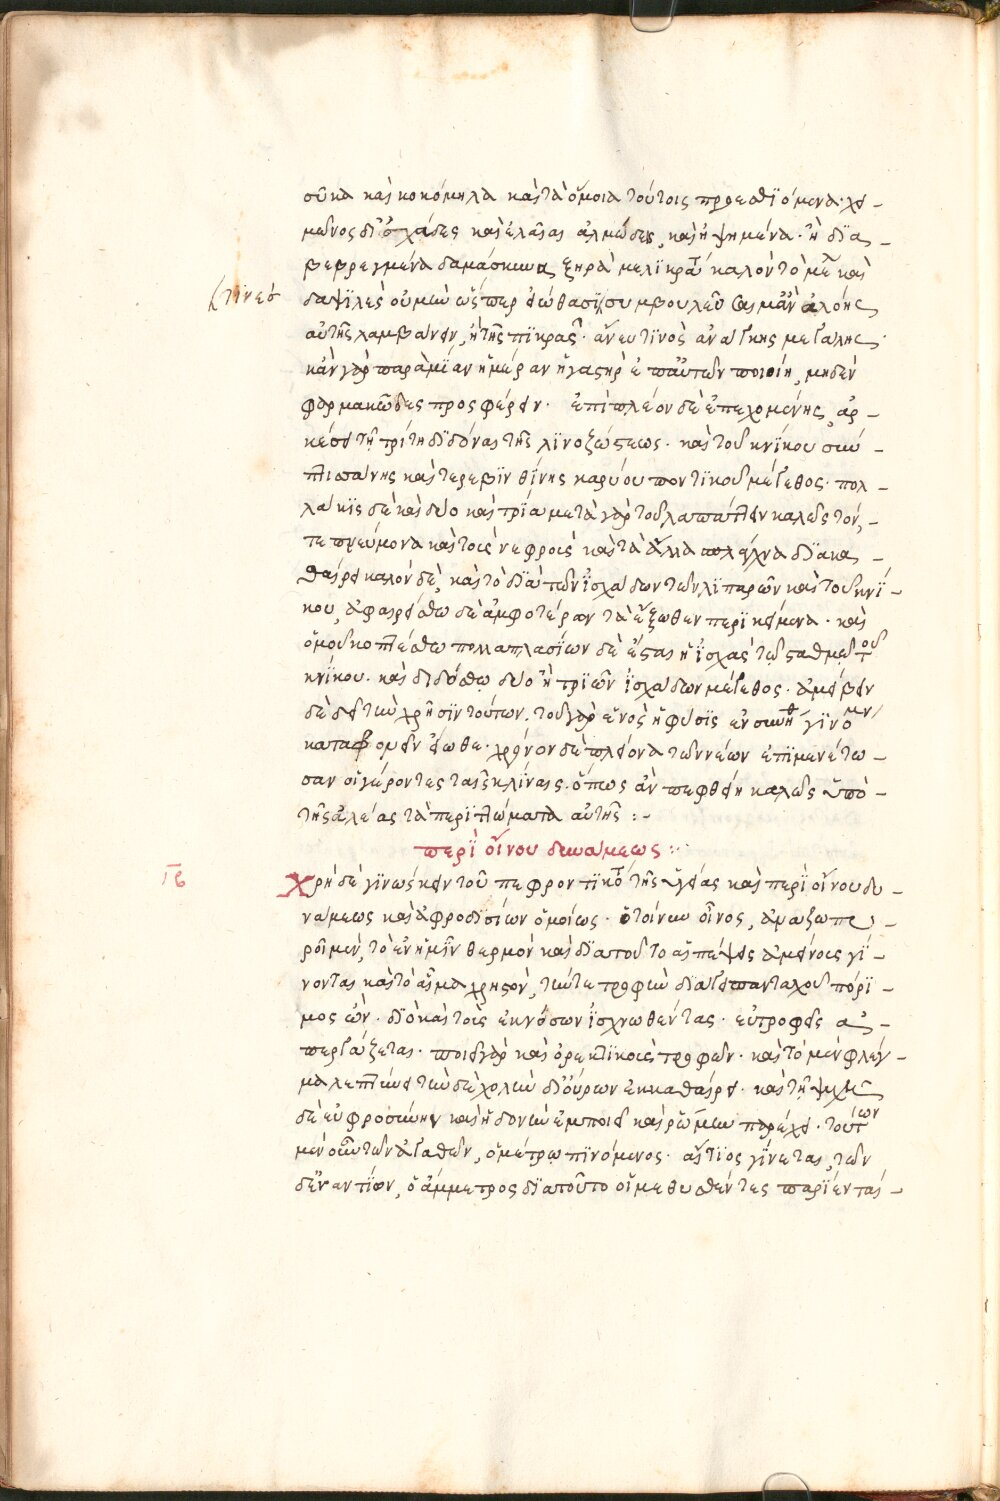 σῦκα καὶ κοκκόμηλα καὶ τὰ ὅμοια τούτοις προεσθιόμενα· χει-
μῶνος δὲ ἰσχάδες καὶ ἐλαῖαι ἁλμάδες, καὶ ἡψημένα· ἢ δια-
βεβρεγμένα δαμάσκηνα ξηρὰ μελικράτῳ καλὸν τὸ μέλι καὶ
τινες
δαψιλές οὐ μὴν ὥσπερ εἰώθασι συμβουλεῦσαιμ' ἂν ἀλόης
αὐτῆς λαμβάνειν, ἢ τῆς πικρᾶς· ἄνευ τινὸς ἀνάγκης μεγάλης·
κἂν γὰρ παρὰ μίαν ἡμέραν ἡ γαστὴρ ἐπ' αὐτῶν ποιοίη, μηδὲν
φαρμακῶδες προσφέρειν· ἐπὶ πλέον δὲ ἐπεχομένης, ἀρ-
κέσει τῇ τρίτῃ διδόναι τῆς λινοζώστεως· καὶ τοῦ κνίκου σὺν
πτισάνης καὶ τερεβινθίνης καρύου ποντικοῦ μέγεθος· πολ-
λάκις δὲ καὶ δύο καὶ τρία μετὰ γὰρ τοῦ λαπάττειν καλῶς τόν,
τε πνεύμονα καὶ τοὺς νεφροὺς καὶ τὰ ἄλλα σπλάγχνα διακα-
θαίρει καλὸν δὲ, καὶ τὸ διὰ τῶν ἰσχάδων τῶν λιπαρῶν καὶ τοῦ κνί-
κου, ἀφαιρείσθω δὲ ἀμφοτέρων τὰ ἔξωθεν περικείμενα· καὶ
ὁμοῦ κοπτέσθω πολλαπλασίων δὲ ἔσται ἡ ἰσχὰς τῷ σταθμῷ τοῦ
κνίκου· καὶ διδόσθω δύο ἢ τριῶν ἰσχάδων μέγεθος· ἀμείβειν
δὲ δεῖ τὴν χρῆσιν τούτων. τοῦ γὰρ ἑνὸς ἡ φύσις ἐν συνηθ γινομεν
καταφρονεῖν εἴωθε· χρόνον δὲ πλείονα τῶν νέων ἐπιμενέτω-
σαν οἱ γέροντες ταῖς κλίναις· ὅπως ἂν πεφθείη καλῶς ὑπὸ
τῆς ἀλέας τὰ περιττώματα αὐτῆς :-
περὶ οἴνου δυνάμεως :
ιβ
Χρὴ δὲ γινώσκειν τοῦ πεφροντικότ τῆς ὑγείας καὶ περὶ οἴνου δυ-
νάμεως καὶ ἀφροδισίων ὁμοίως· ὅτοίνυν οἶνος, ἀναζωπυ-
ροῖ μὲν, τὸ ἐν ἡμῖν θερμὸν καὶ διὰ τοῦτο αἱ πέψεις ἀμείνους γί-
νονται καὶ τὸ αἷμα χρηστὸν, τήν τε τροφὴν διάγει πανταχοῦ πόρι-
μος ὤν· διὸ καὶ τοὺς ἐκ νόσων ἰσχνωθέντας· εὐτροφεῖς α-
περγάζεται· ποιεῖ γὰρ καὶ ὀρεκτικοὺς τροφῶν· καὶ τὸ μὲν φλέγ-
μα λεπτύνει τὴν δὲ χολὴν δι' οὔρων ἐκκαθαίρει· καὶ τῇ ψυχῇ
δὲ εὐφροσύνην καὶ ἡδονὴν ἐμποιεῖ καὶ ῥώμην παρέχει· τούτων
μὲν οὖν τῶν ἀγαθῶν, ὁ μέτρῳ πινόμενος· αἴτιος γίνεται, τῶν
δ' ἐναντίων, ὁ ἄμμετρος διὰ τοῦτο οἱ μεθυσθέντες παρίενται-